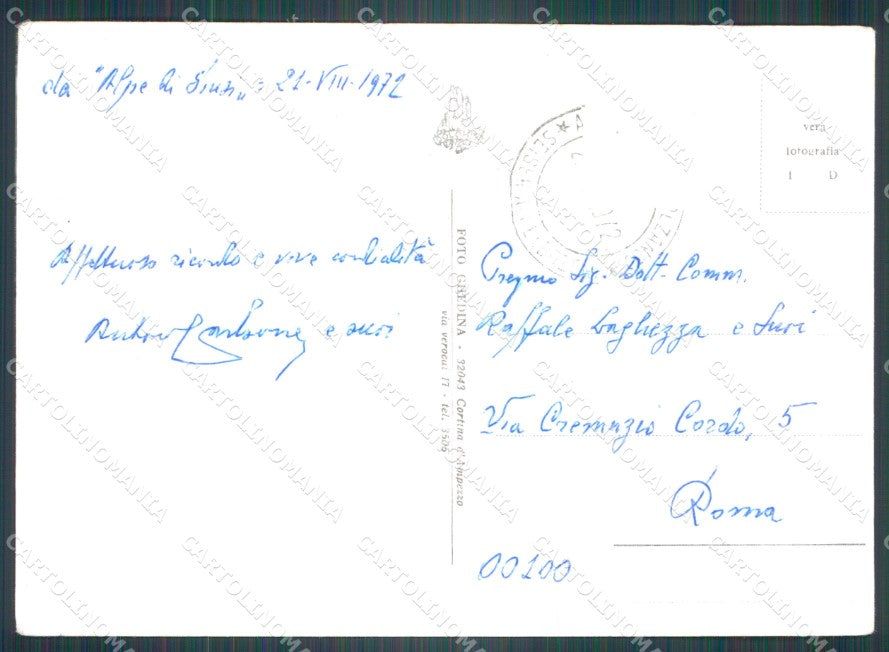 da "Alpe di Siusi" = 21-VIII-1972
Affettuoso ricordo e vive cordialità
e suoi
vera
fotografia
I D
FOTO GHEDINA - 32043 Cortina d'Ampezzo
via verocai 17 - tel. 3506
Pregmo Sig. Dott. Comm.
Raffale e Suoi
Via Cremuzio Cordo, 5
Roma
00100
CARTOLINOMANIA